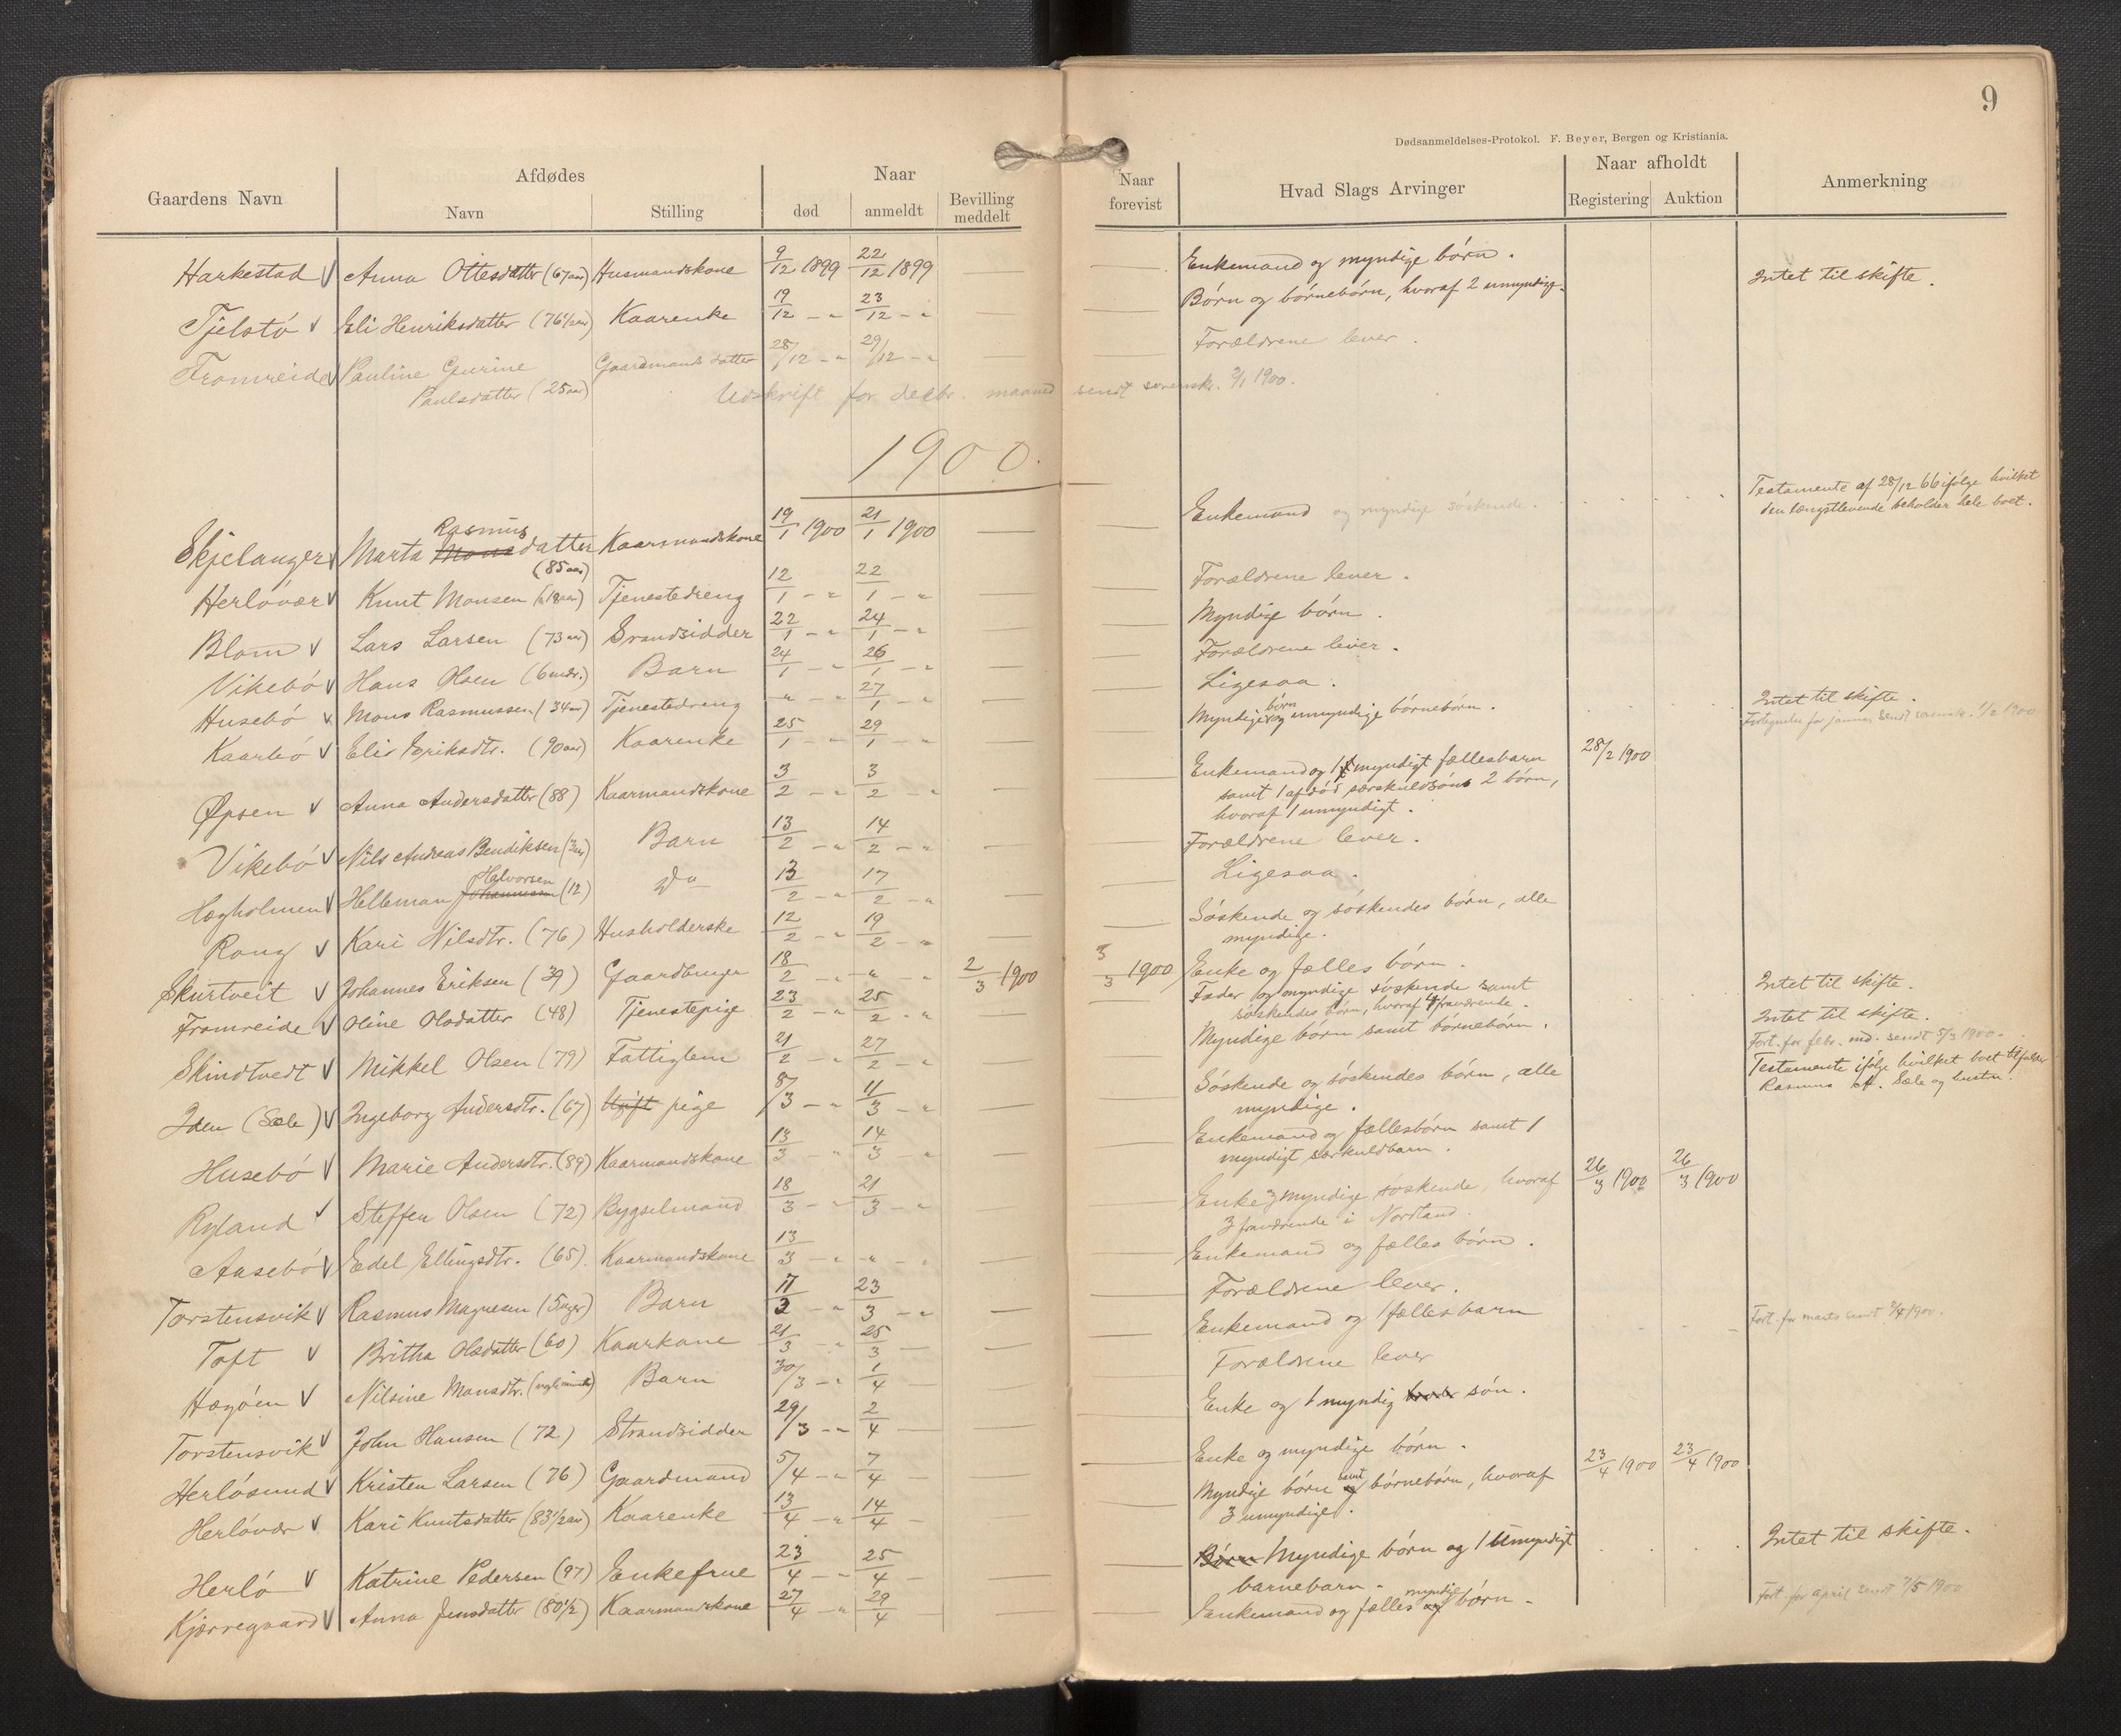 9
Dødsanmeldelses-Protokol. F. Beyer, Bergen og Kristiania.
Gaardens Navn | Afdødes | Naar | Naar forevist | Hvad Slags Arvinger | Naar afholdt | Anmerkning
Navn | Stilling | død | anmeldt | Bevilling meddelt | Registering | Auktion
Harkestad √ Anna Ottesdatter (67 aar) Husmandskone 9/12 1899 22/12 1899 — — Enkemand og myndige börn. Intet til skifte.
Tjelstö √ Eli Henriksdatter (76 1/2 aar) Kaarenke 19/12 - " 23/12 - " — — Börn og börnebörn, hvoraf 2 umyndige.
Fromreide √ Pauline Gurine Gaardmands datter 28/12 - " 29/12 - " — — Forældrene lever.
Paulsdatter (25 aar)
Udskrift for decbr. maaned sendt sorenskr. 2/1 1900.
1900.
Skjelanger √ Marta Rasmus Mons datter Kaarmandskone 19/1 1900 21/1 1900 — — Enkemand og myndige söskende. Testamente af 28/12 66 ifölge hvilket
(85 aar) den længstlevende beholder hele boet.
Herlövær √ Knut Monsen (18 aar) Tjenestedreng 12/1 - " 22/1 - " — — Forældrene lever.
Blom √ Lars Larsen (73 aar) Strandsidder 22/1 - " 24/1 - " — — Myndige börn.
Vikebö √ Hans Olsen (6 mdr.) Barn 24/1 - " 26/1 - " — — Forældrene lever.
Husebö √ Mons Rasmussen (34 aar) Tjenestedreng " - " 27/1 - " — — Ligesaa.
Kaarbö √ Elis Eriksdtr. (90 aar) Kaarenke 25/1 - " 29/1 - " — — Myndige börn og umyndige börnebörn. Intet til skifte.
Fortegnelse for januar sendt sorenskr. 1/2 1900
Øpsen √ Anna Andersdatter (88) Kaarmandskone 3/2 - " 3/2 - " — — Enkemand og 1 myndigt fællesbarn 28/2 1900
samt 1 afdöd særskuldsöns 2 börn,
hvoraf 1 umyndigt.
Vikebö √ Nils Andreas Bendiksen Barn 13/2 - " 14/2 - " — — Forældrene lever.
Hægholmen √ Helleman Halvorsen Johannesen (12) Do 13/2 - " 17/2 - " — — Ligesaa.
Rong √ Kari Nilsdtr. (76) Husholderske 12/2 - " 19/2 - " — — Söskende og söskendes börn, alle
myndige.
Skurtveit √ Johannes Eriksen (39) Gaardbruger 18/2 - " - " 2/3 1900 3/3 1900 Enke og fælles börn. Intet til skifte.
Fromreide √ Oline Olsdatter (48) Tjenestepige 23/2 - " 25/2 - " — — Fader og myndige söskende samt Intet til skifte.
söskendes börn, hvoraf 4 fraværende.
Skindtvedt √ Mikkel Olsen (79) Fattiglem 21/2 - " 27/2 - " — — Myndige börn samt börnebörn. Fort. for febr. md. sendt 5/3 1900.
Iden (Sæle) √ Ingeborg Andersdtr. (67) Ugift pige 8/3 - " 11/3 - " — — Söskende og söskendes börn, alle Testamente ifölge hvilket boet tilfalder
myndige. Rasmus A. Sæle og hustru.
Husebö √ Marie Andersdtr. (89) Kaarmandskone 13/3 - " 14/3 - " — — Enkemand og fællesbörn samt 1
myndigt særkuldbarn.
Ryland √ Steffen Olsen (72) Bygselmand 18/3 - " 21/3 - " — — Enke, myndige söskende, hvoraf 26/3 1900 26/3 1900
3 fraværende i Nordland.
Aasebö √ Edel Ellingsdtr. (65) Kaarmandskone 13/3 - " - " — — Enkemand og fælles börn.
Torstensvik √ Rasmus Magnesen (5 uger) Barn 17/3 - " 23/3 - " — — Forældrene lever.
Toft √ Britha Olsdatter (60) Kaarkone 21/3 - " 25/3 — — — Enkemand og 1 fællesbarn Fort. for marts sendt 2/4 1900.
Hægöen √ Nilsine Monsdtr. Barn 30/3 - " 1/4 — — — Forældrene lever
Torstensvik √ John Hansen (72) Strandsidder 29/3 - " 2/4 — — — Enke og 1 myndig sön.
Herlösund √ Kristen Larsen (76) Gaardmand 5/4 - " 7/4 — — — Enke og myndige börn. 23/4 1900 23/4 1900
Herlövær √ Kari Knutsdatter (83 1/2 aar) Kaarenke 13/4 - " 14/4 — — — Myndige börn samt og börnebörn, hvoraf
3 umyndige.
Herlö √ Katrine Pedersen (97) Enkefrue 23/4 - " 25/4 — — — Börn Myndige börn og 1 umyndigt Intet til skifte.
barnebarn.
Kjærregaard √ Anna Jensdatter (80 1/2) Kaarmandskone 27/4 - " 29/4 — — Enkemand og fælles myndige og börn. Fort. for april sendt 1/5 1900